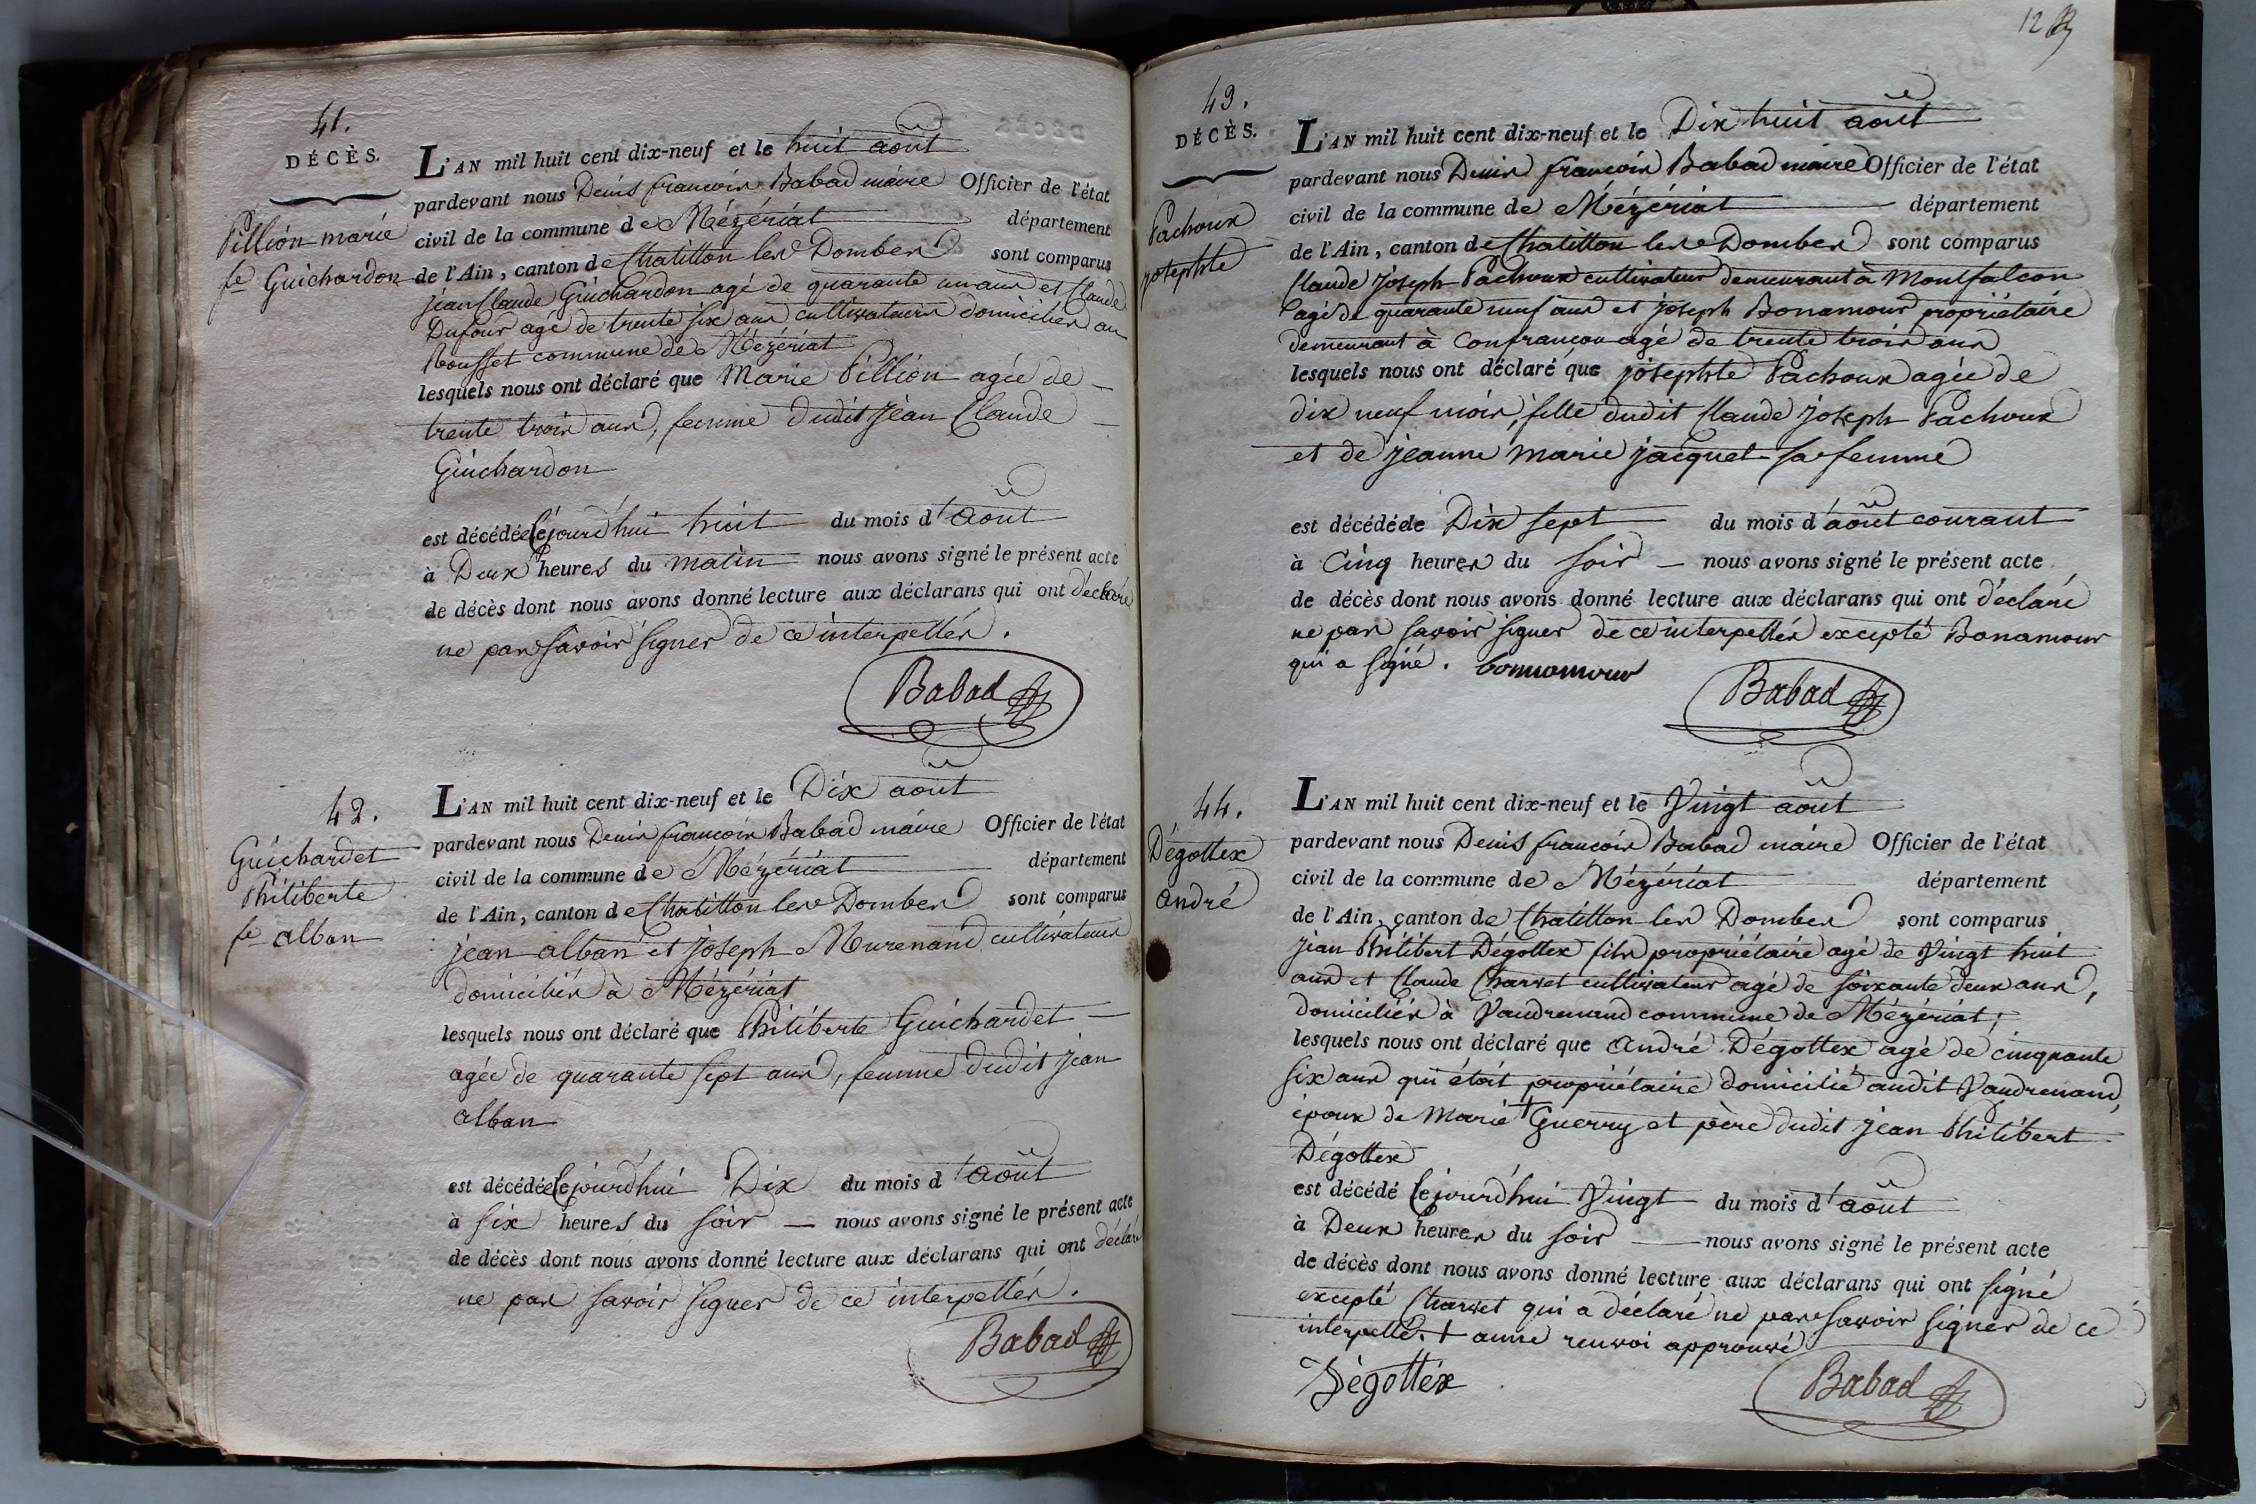 41.
DÉCÈS.
Pillion marie
fe Guichardon
L'AN mil huit cent dix-neuf et le huit août
pardevant nous Denis françois Babad maire Officier de l'état
civil de la commune de Mézériat département
de l'Ain, canton de Chatillon les Dombes sont comparus
jean Claude Guichardon agé de quarante un ans et Claude
Dufour agé de trente six ans cultivateurs domiciliés au
Rousset commune de Mézériat
lesquels nous ont déclaré que Marie Pillion agée de
trente trois ans, femme dudit jean Claude
Guichardon
est décédée cejourd'hui huit du mois d'août
à Deux heures du matin nous avons signé le présent acte
de décès dont nous avons donné lecture aux déclarans qui ont déclaré
ne pas savoir signer de ce interpellés.
Babad
42.
Guichardet
Philiberte
fe alban
L'AN mil huit cent dix-neuf et le Dix août
pardevant nous Denis françois Babad maire Officier de l'état
civil de la commune de Mézériat département
de l'Ain, canton de Chatillon les Dombes sont comparus
jean alban et joseph Murenand cultivateurs
domiciliés à Mézériat
lesquels nous ont déclaré que Philiberte Guichardet
agée de quarante sept ans, femme dudit jean
alban
est décédée cejourd'hui Dix du mois d'août
à six heures du soir nous avons signé le présent acte
de décès dont nous avons donné lecture aux déclarans qui ont déclaré
ne pas savoir signer de ce interpellés.
Babad
12
43.
DÉCÈS.
Pachoux
josephte
L'AN mil huit cent dix-neuf et le Dix huit août
pardevant nous Denis françois Babad maire Officier de l'état
civil de la commune de Mézériat département
de l'Ain, canton de Chatillon les Dombes sont comparus
Claude joseph Pachoux cultivateur demeurant à Montfalcon
agé de quarante neuf ans et joseph Bonamour propriétaire
demeurant à Confrançon agé de trente trois ans
lesquels nous ont déclaré que josephte Pachoux agée de
dix neuf mois, fille dudit Claude joseph Pachoux
et de jeanne marie jacquet sa femme
est décédée le Dix sept du mois d'août courant
à Cinq heures du soir nous avons signé le présent acte
de décès dont nous avons donné lecture aux déclarans qui ont déclaré
ne pas savoir signer de ce interpellés excepté Bonamour
qui a signé. bonnamour
Babad
44.
Dégottex
andré
L'AN mil huit cent dix-neuf et le Vingt août
pardevant nous Denis françois Babad maire Officier de l'état
civil de la commune de Mézériat département
de l'Ain, canton de Chatillon les Dombes sont comparus
jean Philibert Dégottex fils propriétaire agé de Vingt huit
ans et Claude Charvet cultivateur agé de soixante deux ans,
domiciliés à Vaudrenand commune de Mézériat;
lesquels nous ont déclaré que andré Dégottex agé de cinquante
six ans qui étoit propriétaire domicilié audit Vaudrenand,
époux de Marie + Guerry et père dudit jean Philibert
Dégottex
est décédé cejourd'hui Vingt du mois d'août
à Deux heures du soir nous avons signé le présent acte
de décès dont nous avons donné lecture aux déclarans qui ont signé
excepté Charvet qui a déclaré ne pas savoir signer de ce
interpellé. + anne renvoi approuvé
Dègottéx
Babad